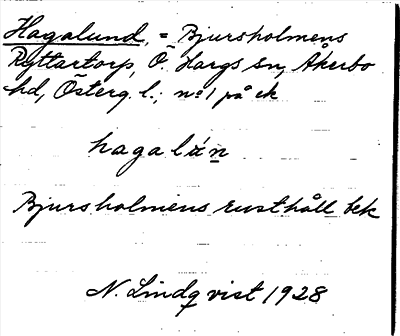 Hagalund, = Bjursholmens
Ryttartorp, Ö. Hargs sn, Åkerbo
hd, Österg. l.; no 1 på ek
hagalún
Bjursholmens rusthåll bek
N. Lindqvist 1928